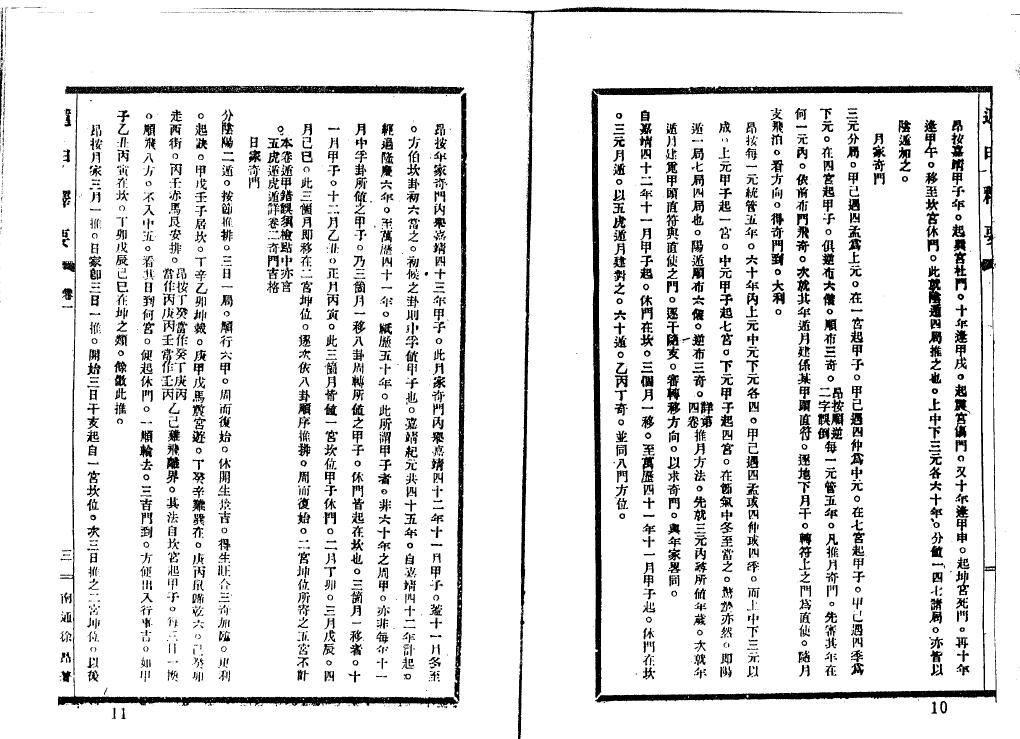 昂按嘉靖甲子年。起巽宮杜門。十年逢甲戌。起震宮傷門。又十年逢甲申。起坤宮死門。再十年
逢甲午。移至坎宮休門。此就陰遁四局推之也。上中下三元各六十年。分値一四七諸局。亦皆以
陰遁加之。
月家奇門
三元分局。甲己遇四孟爲上元。在一宮起甲子。甲己遇四仲爲中元。在七宮起甲子。甲己遇四季爲
下元。在四宮起甲子。俱逆布六儀。順布三奇。昂按順逆二字誤倒每一元管五年。凡推月奇門。先審其年在
何一元內。依前布門飛奇。次就其年遁月建係某甲頭直符。逐地下月干。轉符上之門爲直使。隨月
支飛泊。看方向。得奇門到。大利。
昂按每一元統管五年。六十年內上元中元下元各四。甲己遇四孟或四仲或四季。而上中下三元以
成。上元甲子起一宮。中元甲子起七宮。下元甲子起四宮。在節氣中冬至當之。驚蟄亦然。即陽
遁一局七局四局也。陽遁順布六儀。逆布三奇。詳第四卷推月方法。先就三元內尋所値年歲。次就年
遁月建覓甲頭直符與直使之門。逐干隨支。審轉移方向。以求奇門。與年家畧同。
自嘉靖四十二年十一月甲子起。休門在坎。三個月一移。至萬歷四十一年十一月甲子起。休門在坎
。三元月遁。以五虎遁月建對之。六十遁。乙丙丁奇。並同八門方位。
10
昂按年家奇門內舉嘉靖四十三年甲子。此月家奇門內舉嘉靖四十二年十一月甲子。蓋十一月冬至
。方伯坎卦初六當之。初候之卦則中孚値甲子也。嘉靖紀元共四十五年。自嘉靖四十二年計起。
經過隆慶六年。至萬歷四十一年。綜歷五十年。此所謂甲子者。非六十年之周甲。亦非每年十一
月中孚卦所値之甲子。乃三個月一移八卦周轉所値之甲子。休門皆起在坎也。三箇月一移者。十
一月甲子。十二月乙丑。正月丙寅。此三箇月皆値一宮坎位甲子休門。二月丁卯。三月戊辰。四
月己巳。此三箇月即移在二宮坤位。逐次依八卦順序推排。周而復始。二宮坤位所寄之五宮不計
。本卷遁甲錯誤須檢點中亦言五虎遁虎遁詳卷二奇門吉格
日家奇門
分陰陽二遁。按節推排。三日一局。順行六甲。周而復始。休開生最吉。得生旺合三奇加臨。更利
。起訣。甲戊壬子居坎。丁辛乙卯坤裁。庚甲戊馬震宮遊。丁癸辛雞巽在。庚丙鼠歸乾六。己癸卯
走西街。丙壬亦馬艮安排。昂按丁癸當作癸丁庚丙當作丙庚丙壬當作壬丙乙己雞飛離界。其法自坎宮起甲子。每三日一換
。順飛八方。不入中五。看其日到何宮。便起休門。一順輪去。三吉門到。方便出入行事吉。如甲
子乙丑丙寅在坎。丁卯戊辰己巳在坤之類。餘倣此推。
昂按月家三月一推。日家卽三日一推。開始三日干支起自一宮坎位。次三日推之二宮坤位。以後
卷一
三
南通徐昂著
11